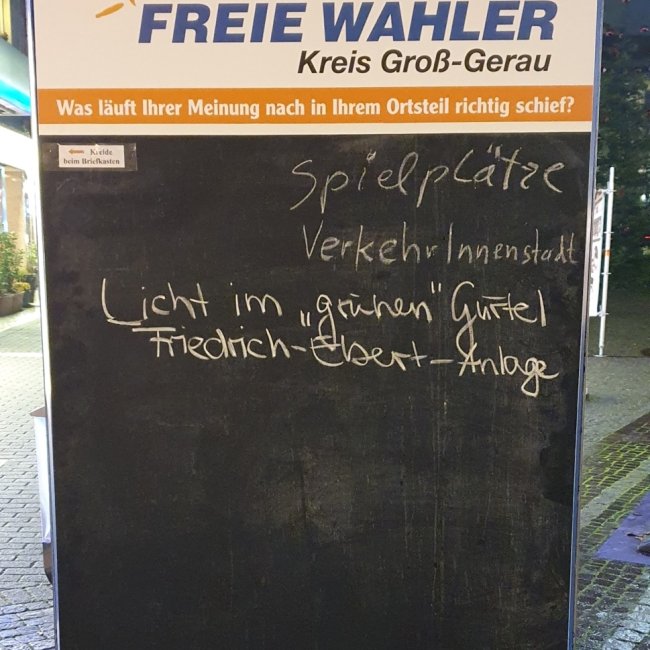 FREIE WÄHLER
Kreis Groß-Gerau
Was läuft Ihrer Meinung nach in Ihrem Ortsteil richtig schief?
← Kreide
beim Briefkasten
Spielplätze
Verkehr Innenstadt
Licht im „grünen“ Gürtel
Friedrich-Ebert-Anlage